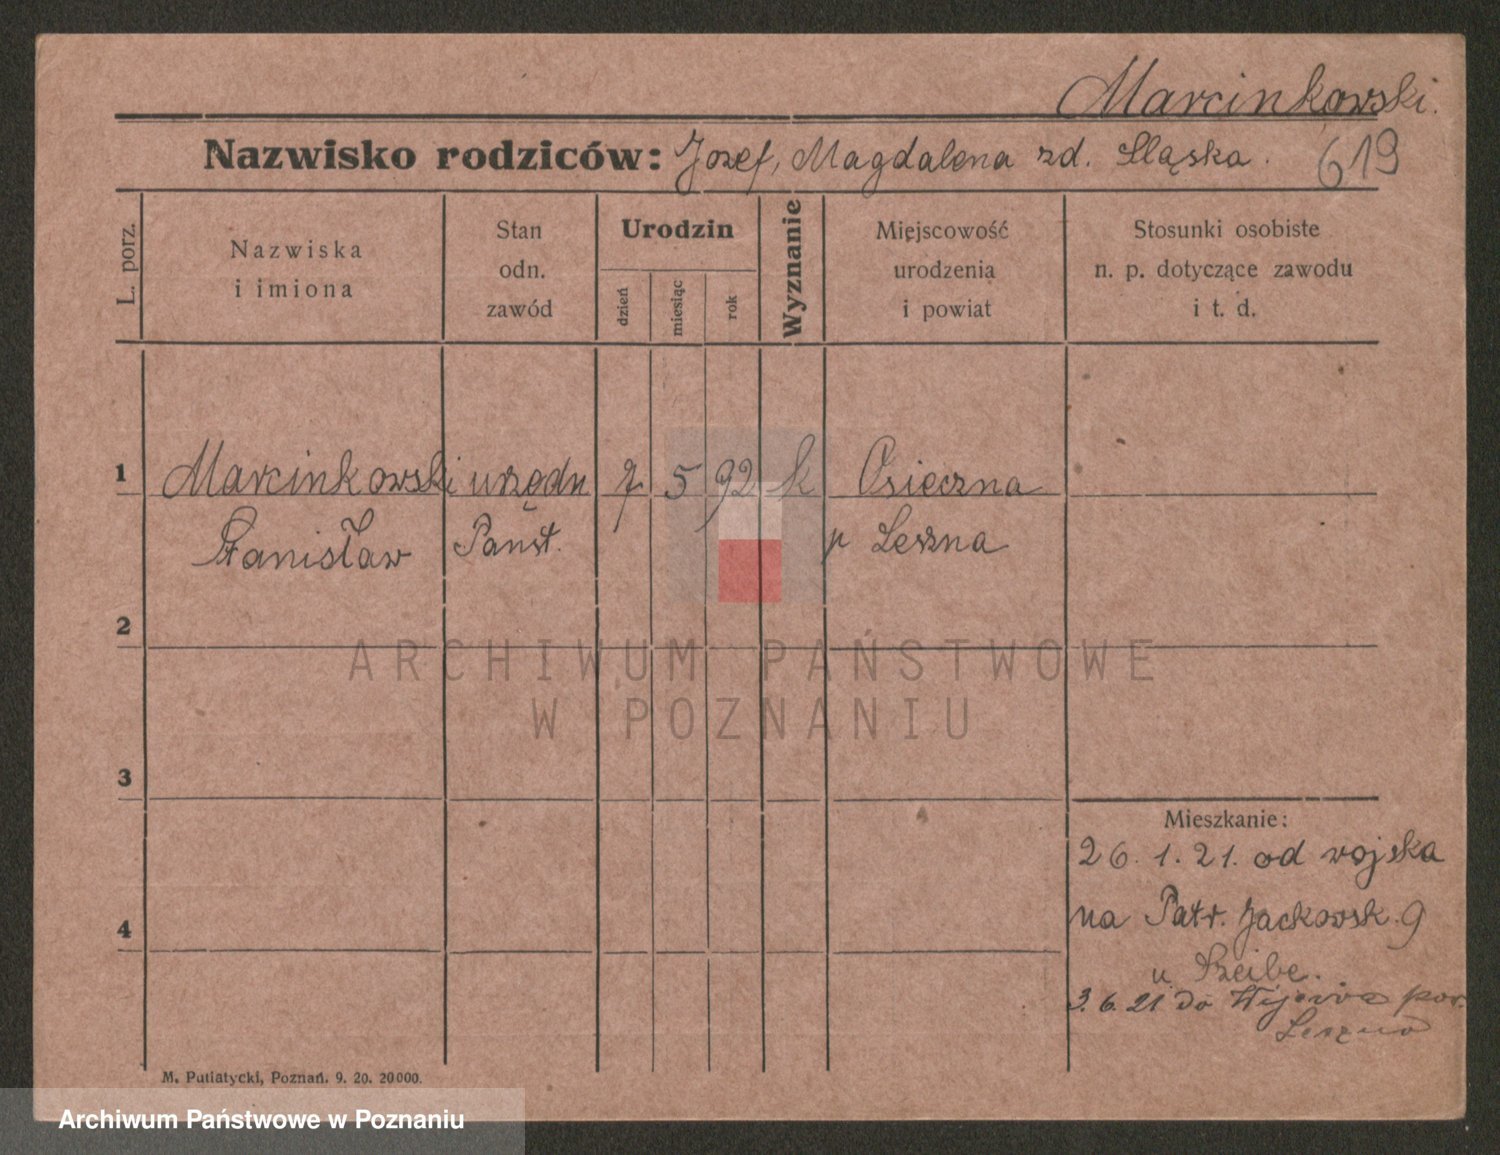 Marcinkowski.
Nazwisko rodziców: Jozef, Magdalena zd. Sląska. 619
L. porz.
Nazwiska
i imiona
Stan
odn.
zawód
Urodzin
dzień
miesiąc
rok
Wyznanie
Miejscowość
urodzenia
i powiat
Stosunki osobiste
n. p. dotyczące zawodu
i t. d.
1 Marcinkowski urzędn 7 5 92 k Osieczna
Stanisław Panst. p Leszna
2
ARCHIWUM PAŃSTWOWE
W POZNANIU
3
Mieszkanie:
26. 1. 21. od wojska
4
na Patr. Jackowsk. 9
u
3. 6. 21 do pow.
Leszno
M. Putiatycki, Poznań. 9. 20. 20000.
Archiwum Państwowe w Poznaniu